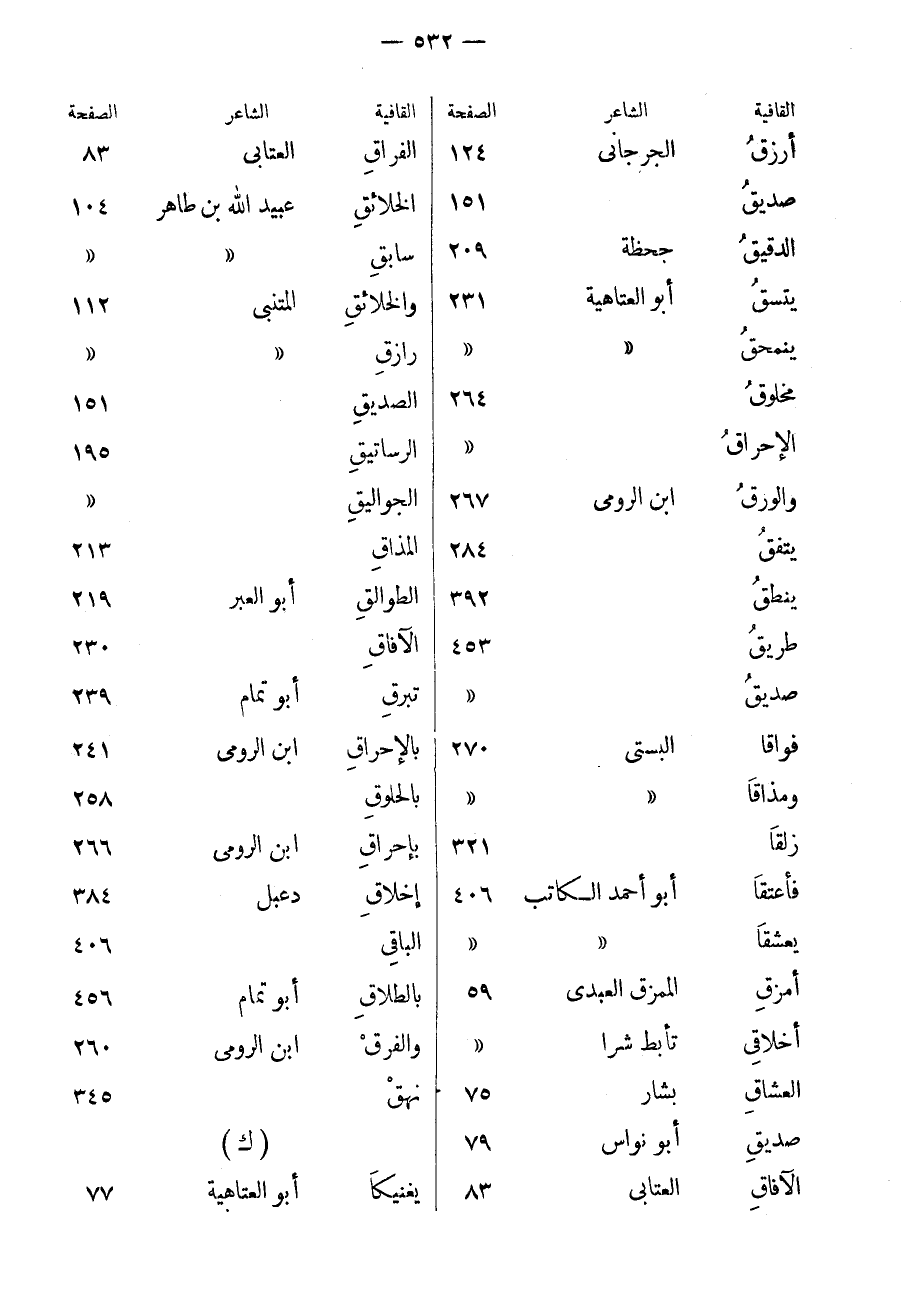 — ٥٣٢ —
القافية الشاعر الصفحة
أرزقُ الجرجانى ١٢٤
صديقُ ١٥١
الدقيقُ جحظة ٢٠٩
يتسقُ أبو العتاهية ٢٣١
ينمحقُ » »
مخلوقُ ٢٦٤
الإحراقُ »
والورقُ ابن الرومى ٢٦٧
يتفقُ ٢٨٤
ينطقُ ٣٩٢
طريقُ ٤٥٣
صديقُ »
فواقا البستى ٢٧٠
ومذاقاَ » »
زلقاَ ٣٢١
فأعتقاَ أبو أحمد الكاتب ٤٠٦
يعشقاَ » »
أمزقِ الممزق العبدى ٥٩
أخلاقِى تأبط شرا »
العشاقِ بشار ٧٥
صديقِ أبو نواس ٧٩
الآفاقِ العتابى ٨٣
القافية الشاعر الصفحة
الفراقِ العتابى ٨٣
الخلائقِ عبيد الله بن طاهر ١٠٤
سابقِ » »
والخلائقِ المتنبى ١١٢
رازقِ » »
الصديقِ ١٥١
الرساتيقِ ١٩٥
الجواليقِ »
المذاقِ ٢١٣
الطوالقِ أبو العبر ٢١٩
الآفاقِ ٢٣٠
تبرقِ أبو تمام ٢٣٩
بالإحراقِ ابن الرومى ٢٤١
بالحلوقِ ٢٥٨
بإحراقِ ابن الرومى ٢٦٦
إخلاقِ دعبل ٣٨٤
الباقِى ٤٠٦
بالطلاقِ أبو تمام ٤٥٦
والفرقْ ابن الرومى ٢٦٠
نهقْ ٣٤٥
(ك)
يغنيكاَ أبو العتاهية ٧٧